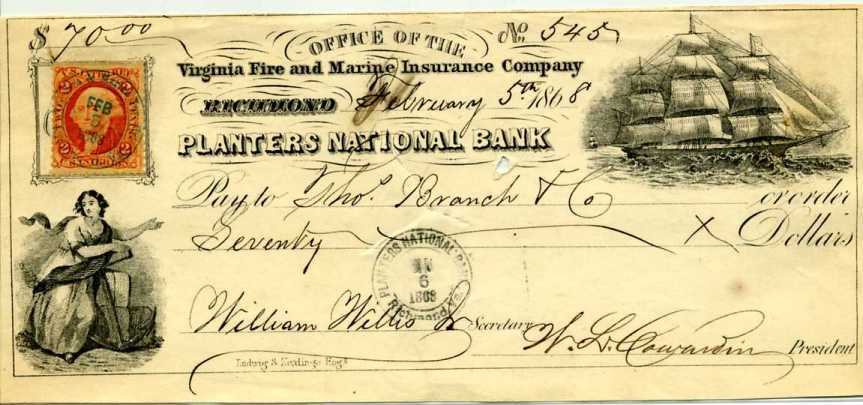 $ 70.00
OFFICE OF THE
No. 545
Virginia Fire and Marine Insurance Company
RICHMOND February 5th 1868
PLANTERS NATIONAL BANK
Pay to Thos. Branch & Co or order
Seventy X Dollars
PLANTERS NATIONAL BANK
6
1868
Richmond, Va.
William Willis Jr Secretary W. L. Cowardin President
FEB
2 2